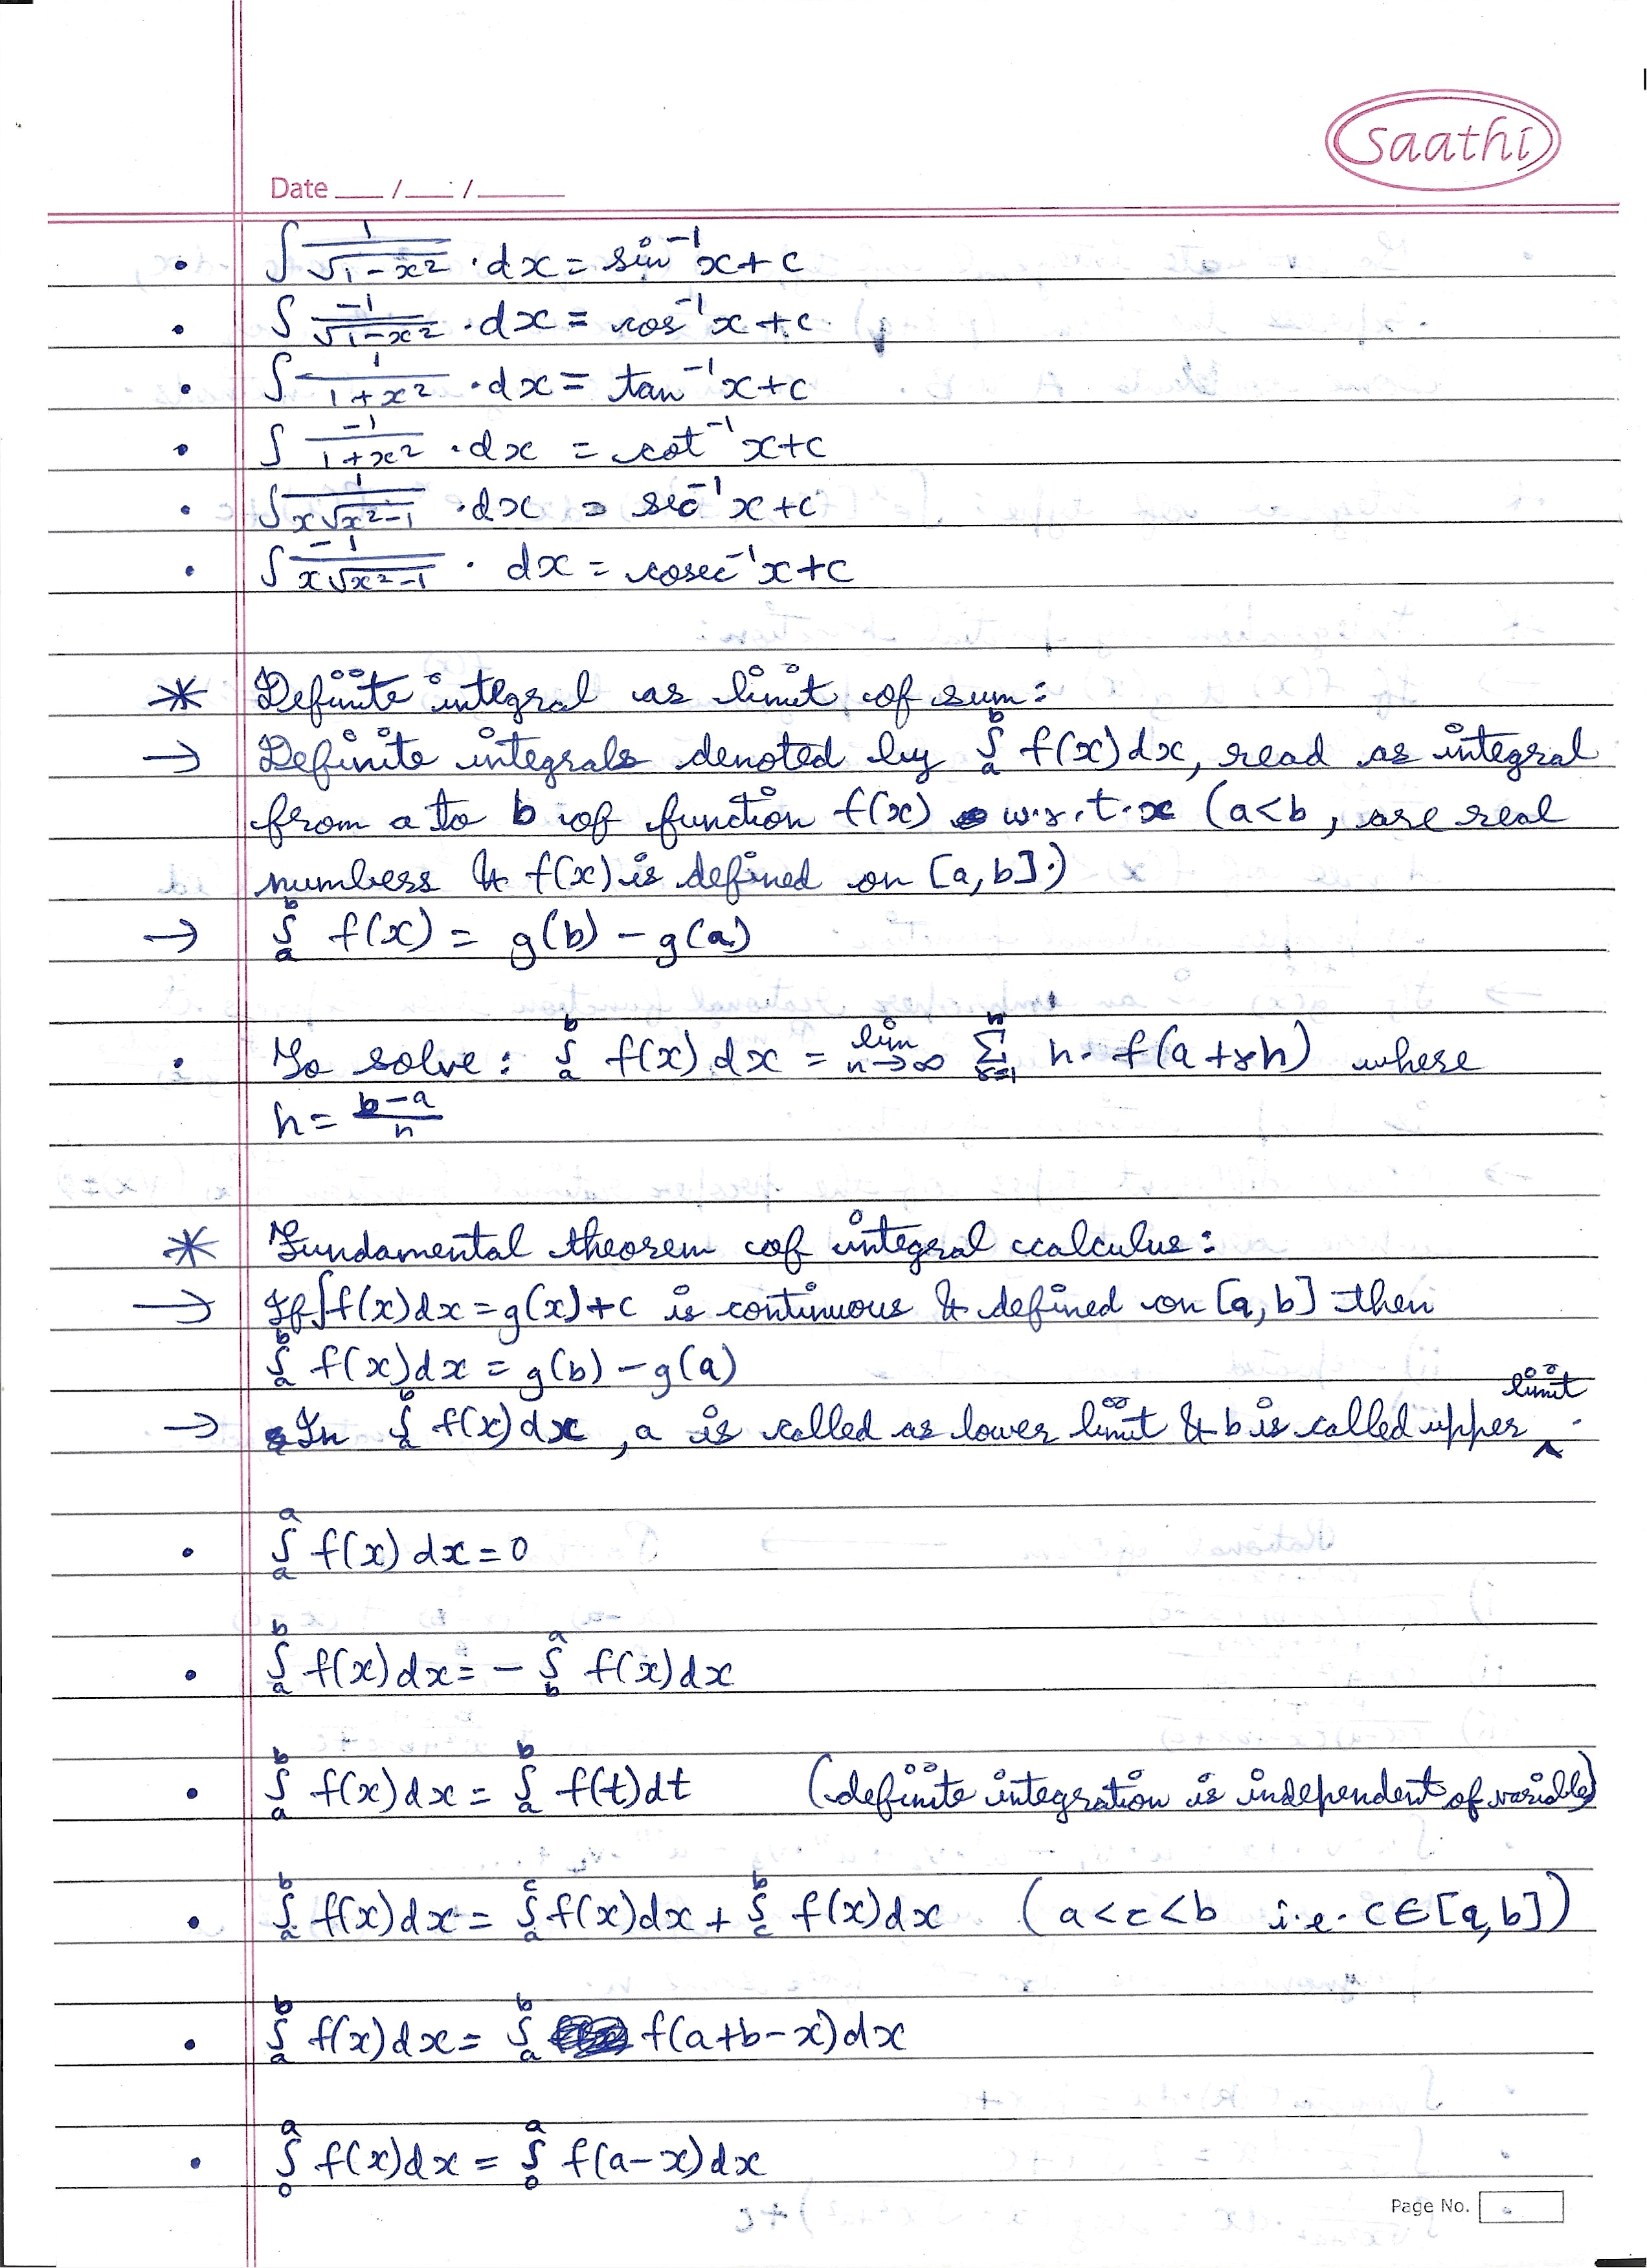 saathi
Date ___/___/_____
• ∫ 1/√(1-x²) · dx = sin⁻¹x + c
• ∫ -1/√(1-x²) · dx = cos⁻¹x + c
• ∫ 1/(1+x²) · dx = tan⁻¹x + c
• ∫ -1/(1+x²) · dx = cot⁻¹x + c
• ∫ 1/(x√(x²-1)) · dx = sec⁻¹x + c
• ∫ -1/(x√(x²-1)) · dx = cosec⁻¹x + c
* Definite integral as limit of sum:
→ Definite integrals denoted by ∫ₐᵇ f(x) dx, read as integral
from a to b of function f(x) w.r.t.x (a<b, are real
numbers & f(x) is defined on [a,b].)
→ ∫ₐᵇ f(x) = g(b) - g(a)
• To solve: ∫ₐᵇ f(x) dx = lim n→∞ Σ r=1 n h· f(a+rh) where
h = (b-a)/n
* Fundamental theorem of integral calculus:
→ If ∫f(x)dx = g(x)+c is continuous & defined on [a,b] then
∫ₐᵇ f(x)dx = g(b) - g(a)
→ In ∫ₐᵇ f(x) dx, a is called as lower limit & b is called upper limit.
• ∫ₐᵃ f(x) dx = 0
• ∫ₐᵇ f(x) dx = - ∫ b a f(x) dx
• ∫ₐᵇ f(x) dx = ∫ₐᵇ f(t)dt (definite integration is independent of variable)
• ∫ₐᵇ f(x)dx = ∫ₐᶜ f(x)dx + ∫ c b f(x)dx (a<c<b i.e. c∈[a,b])
• ∫ₐᵇ f(x)dx = ∫ₐᵇ f(a+b-x)dx
• ∫₀ᵃ f(x)dx = ∫₀ᵃ f(a-x)dx
Page No.